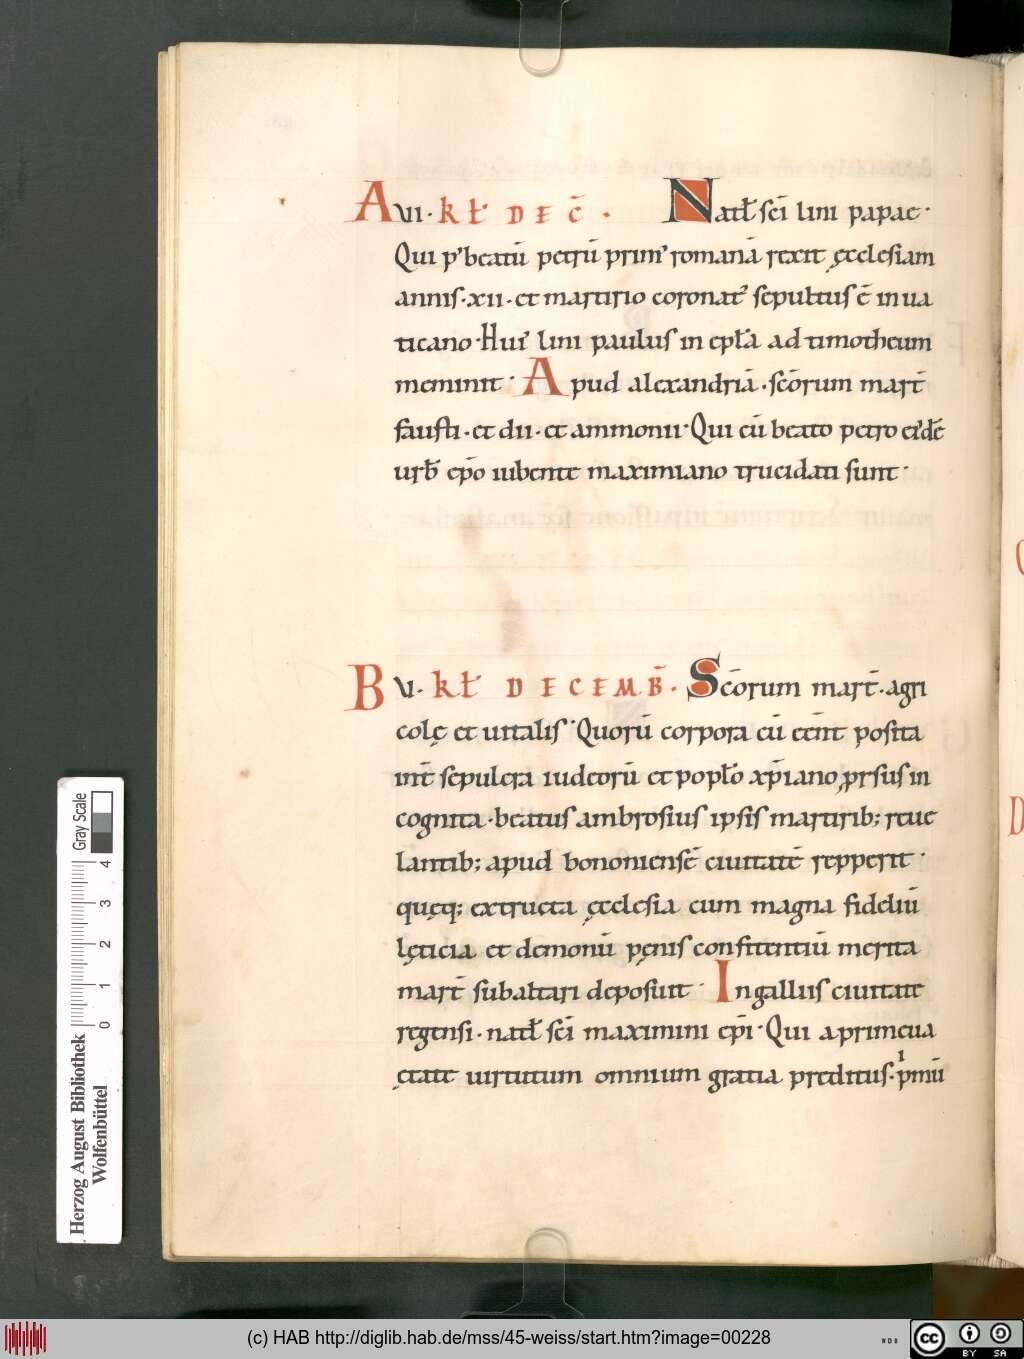 A VI · kƚ D E C̄ · Natƚ sc̄i lini papae ·
Qui p' beatū petrū prim' romanā rexit ęcclesiam
annis · xii · et martirio coronat' sepultus ē in ua
ticano · Hui' lini paulus in epƚa ad timotheum
meminit · Apud alexandriā · sc̄orum mart̄
fausti · et dii · et ammonii · Qui cū beato petro ei'dē
urƀ ep̄o iubente maximiano trucidati sunt ·
B V · kƚ D E C E M B̄ · Sc̄orum mart̄ · agri
colę et uitalis · Quorū corpora cū eēnt posita
int̄ sepulcra iudeorū et popƚo xp̄iano prsus in
cognita · beatus ambrosius ipsis martirib; reue
lantib; apud bononiensē ciuitatē repperit ·
quęq; extructa ęcclesia cum magna fideliū
lęticia et demonū pęnis confitentiū merita
mart̄ sub altari deposuit · In galliis ciuitate
regensi · natƚ sc̄i maximini ep̄i · Qui a primeua
ętate uirtutum omnium gratia preditus · p'mū
Herzog August Bibliothek
Wolfenbüttel
0 1 2 3 4
Gray Scale
(c) HAB http://diglib.hab.de/mss/45-weiss/start.htm?image=00228
WDB
cc BY SA